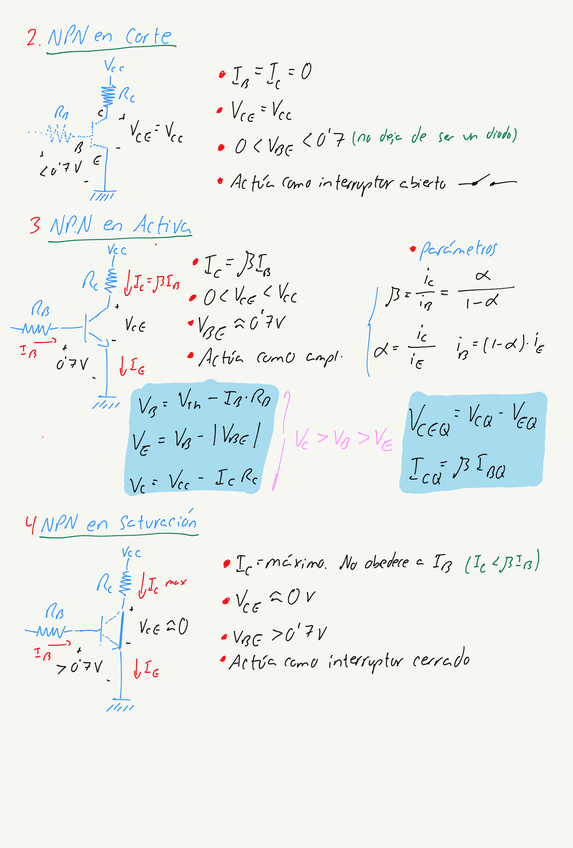 2. NPN en Corte
Vcc
Rc
RB
C
B
E
+
VCE = Vcc
-
+
<0'7V
-
• IB = IC = 0
• VCE = VCC
• 0 < VBE < 0'7 (no deja de ser un diodo)
• Actúa como interruptor abierto
3 NPN en Activa
Vcc
Rc
IC = βIB
RB
+
VCE
-
IB
+
0'7V
-
IE
• IC = βIB
• 0 < VCE < VCC
• VBE ≈ 0'7V
• Actúa como ampl.
• parámetros
β = iC/iB = α/(1-α)
α = iC/iE iB = (1-α)·iE
VB = VTh - IB·RB
VE = VB - |VBE|
VC = VCC - IC RC
VC > VB > VE
VCEQ = VCQ - VEQ
ICQ = β IBQ
4 NPN en Saturación
Vcc
Rc
IC max
RB
+
VCE ≈ 0
-
IB
+
>0'7V
-
IE
• IC = máximo. No obedece a IB (IC < βIB)
• VCE ≈ 0 V
• VBE > 0'7V
• Actúa como interruptor cerrado